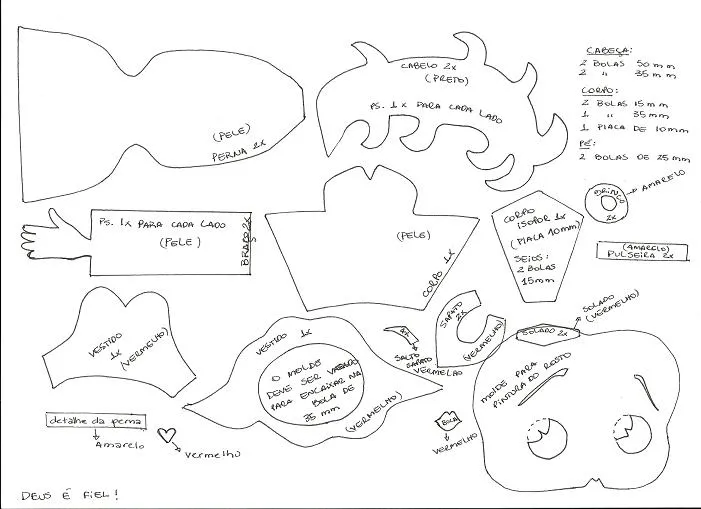 CABEÇA:
2 BOLAS 50 mm
2 " 35 mm
CORPO:
2 BOLAS 15 mm
1 " 35 mm
1 PLACA DE 10mm
PÉ:
2 BOLAS DE 25 mm
CABELO 2x
(PRETO)
PS. 1x PARA CADA LADO
(PELE)
PERNA 2x
BRINCO
2x
AMARELO
PS. 1x PARA CADA LADO
(PELE)
BRAÇO 2x
(PELE)
CORPO 1x
CORPO
ISOPOR 1x
(PLACA 10mm)
SEIOS:
2 BOLAS
15mm
(AMARELO)
PULSEIRA 2x
VESTIDO
1x
(VERMELHO)
VESTIDO 1x
O MOLDE
DEVE SER VASADO
PARA ENCAIXAR NA
BOLA DE
35 mm
(VERMELHO)
SALTO
SAPATO
VERMELHO
SAPATO
2x
(VERMELHO)
SOLADO 2x
SOLADO
(VERMELHO)
MOLDE PARA
PINTURA DO ROSTO
BOCA
VERMELHO
detalhe da perna
Amarelo
vermelho
DEUS É FIEL!